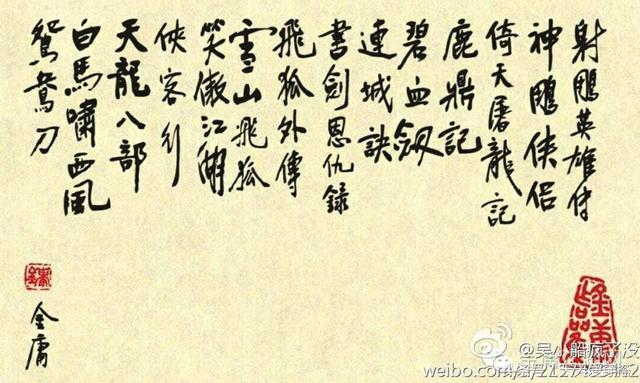 射鵰英雄傳
神鵰俠侶
倚天屠龍記
鹿鼎記
碧血劍
連城訣
書劍恩仇錄
飛狐外傳
雪山飛狐
笑傲江湖
俠客行
天龍八部
白馬嘯西風
鴛鴦刀
金庸
@吴小船疯了没